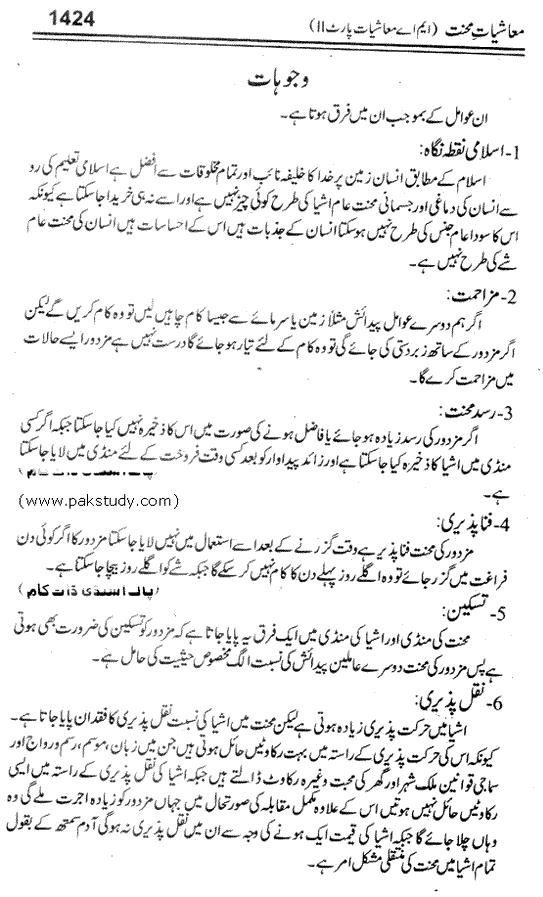 معاشیاتِ محنت (ایم اے معاشیات پارٹ II) 1424
وجوہات
ان عوامل کے بموجب ان میں فرق ہوتا ہے۔
1- اسلامی نقطہ نگاہ:
اسلام کے مطابق انسان زمین پر خدا کا خلیفہ نائب اور تمام مخلوقات سے افضل ہے اسلامی تعلیم کی رو
سے انسان کی دماغی اور جسمانی محنت عام اشیا کی طرح کوئی چیز نہیں ہے اور اسے نہ ہی خریدا جا سکتا ہے کیونکہ
اس کا سودا عام جنس کی طرح نہیں ہو سکتا انسان کے جذبات ہیں اس کے احساسات ہیں انسان کی محنت عام
شے کی طرح نہیں ہے۔
2- مزاحمت:
اگر ہم دوسرے عوامل پیدائش مثلاً زمین یا سرمائے سے جیسا کام چاہیں لیں تو وہ کام کریں گے لیکن
اگر مزدور کے ساتھ زبردستی کی جائے گی تو وہ کام کے لئے تیار ہو جائے گا درست نہیں ہے مزدور ایسے حالات
میں مزاحمت کرے گا۔
3- رسد محنت:
اگر مزدور کی رسد زیادہ ہو جائے یا فاضل ہونے کی صورت میں اس کا ذخیرہ نہیں کیا جا سکتا جبکہ اگر کسی
منڈی میں اشیا کا ذخیرہ کیا جا سکتا ہے اور زائد پیداوار کو بعد کسی وقت فروخت کے لئے منڈی میں لایا جا سکتا
ہے۔
(www.pakstudy.com)
4- فنا پذیری:
مزدور کی محنت فنا پذیر ہے وقت گزرنے کے بعد اسے استعمال میں نہیں لایا جا سکتا مزدور کا اگر کوئی دن
فراغت میں گزر جائے تو وہ اگلے روز پہلے دن کا کام نہیں کر سکے گا جبکہ شے کو اگلے روز بیچا جا سکتا ہے۔
(پاک اسٹڈی ڈاٹ کام)
5- تسکین:
محنت کی منڈی اور اشیا کی منڈی میں ایک فرق یہ پایا جاتا ہے کہ مزدور کو تسکین کی ضرورت بھی ہوتی
ہے پس مزدور کی محنت دوسرے عاملین پیدائش کی نسبت الگ مخصوص حیثیت کی حامل ہے۔
6- نقل پذیری:
اشیا میں حرکت پذیری زیادہ ہوتی ہے لیکن محنت میں اشیا کی نسبت نقل پذیری کا فقدان پایا جاتا ہے۔
کیونکہ اس کی حرکت پذیری کے راستہ میں بہت رکاوٹیں حائل ہوتی ہیں جن میں زبان، موسم، رسم و رواج اور
سماجی قوانین ملک شہر اور گھر کی محبت وغیرہ رکاوٹ ڈالتے ہیں جبکہ اشیا کی نقل پذیری کے راستہ میں ایسی
رکاوٹیں حائل نہیں ہوتیں اس کے علاوہ مکمل مقابلہ کی صورتحال میں جہاں مزدور کو زیادہ اجرت ملے گی وہ
وہاں چلا جائے گا جبکہ اشیا کی قیمت ایک ہونے کی وجہ سے ان میں نقل پذیری نہ ہو گی آدم سمتھ کے بقول
تمام اشیا میں محنت کی منتقلی مشکل امر ہے۔